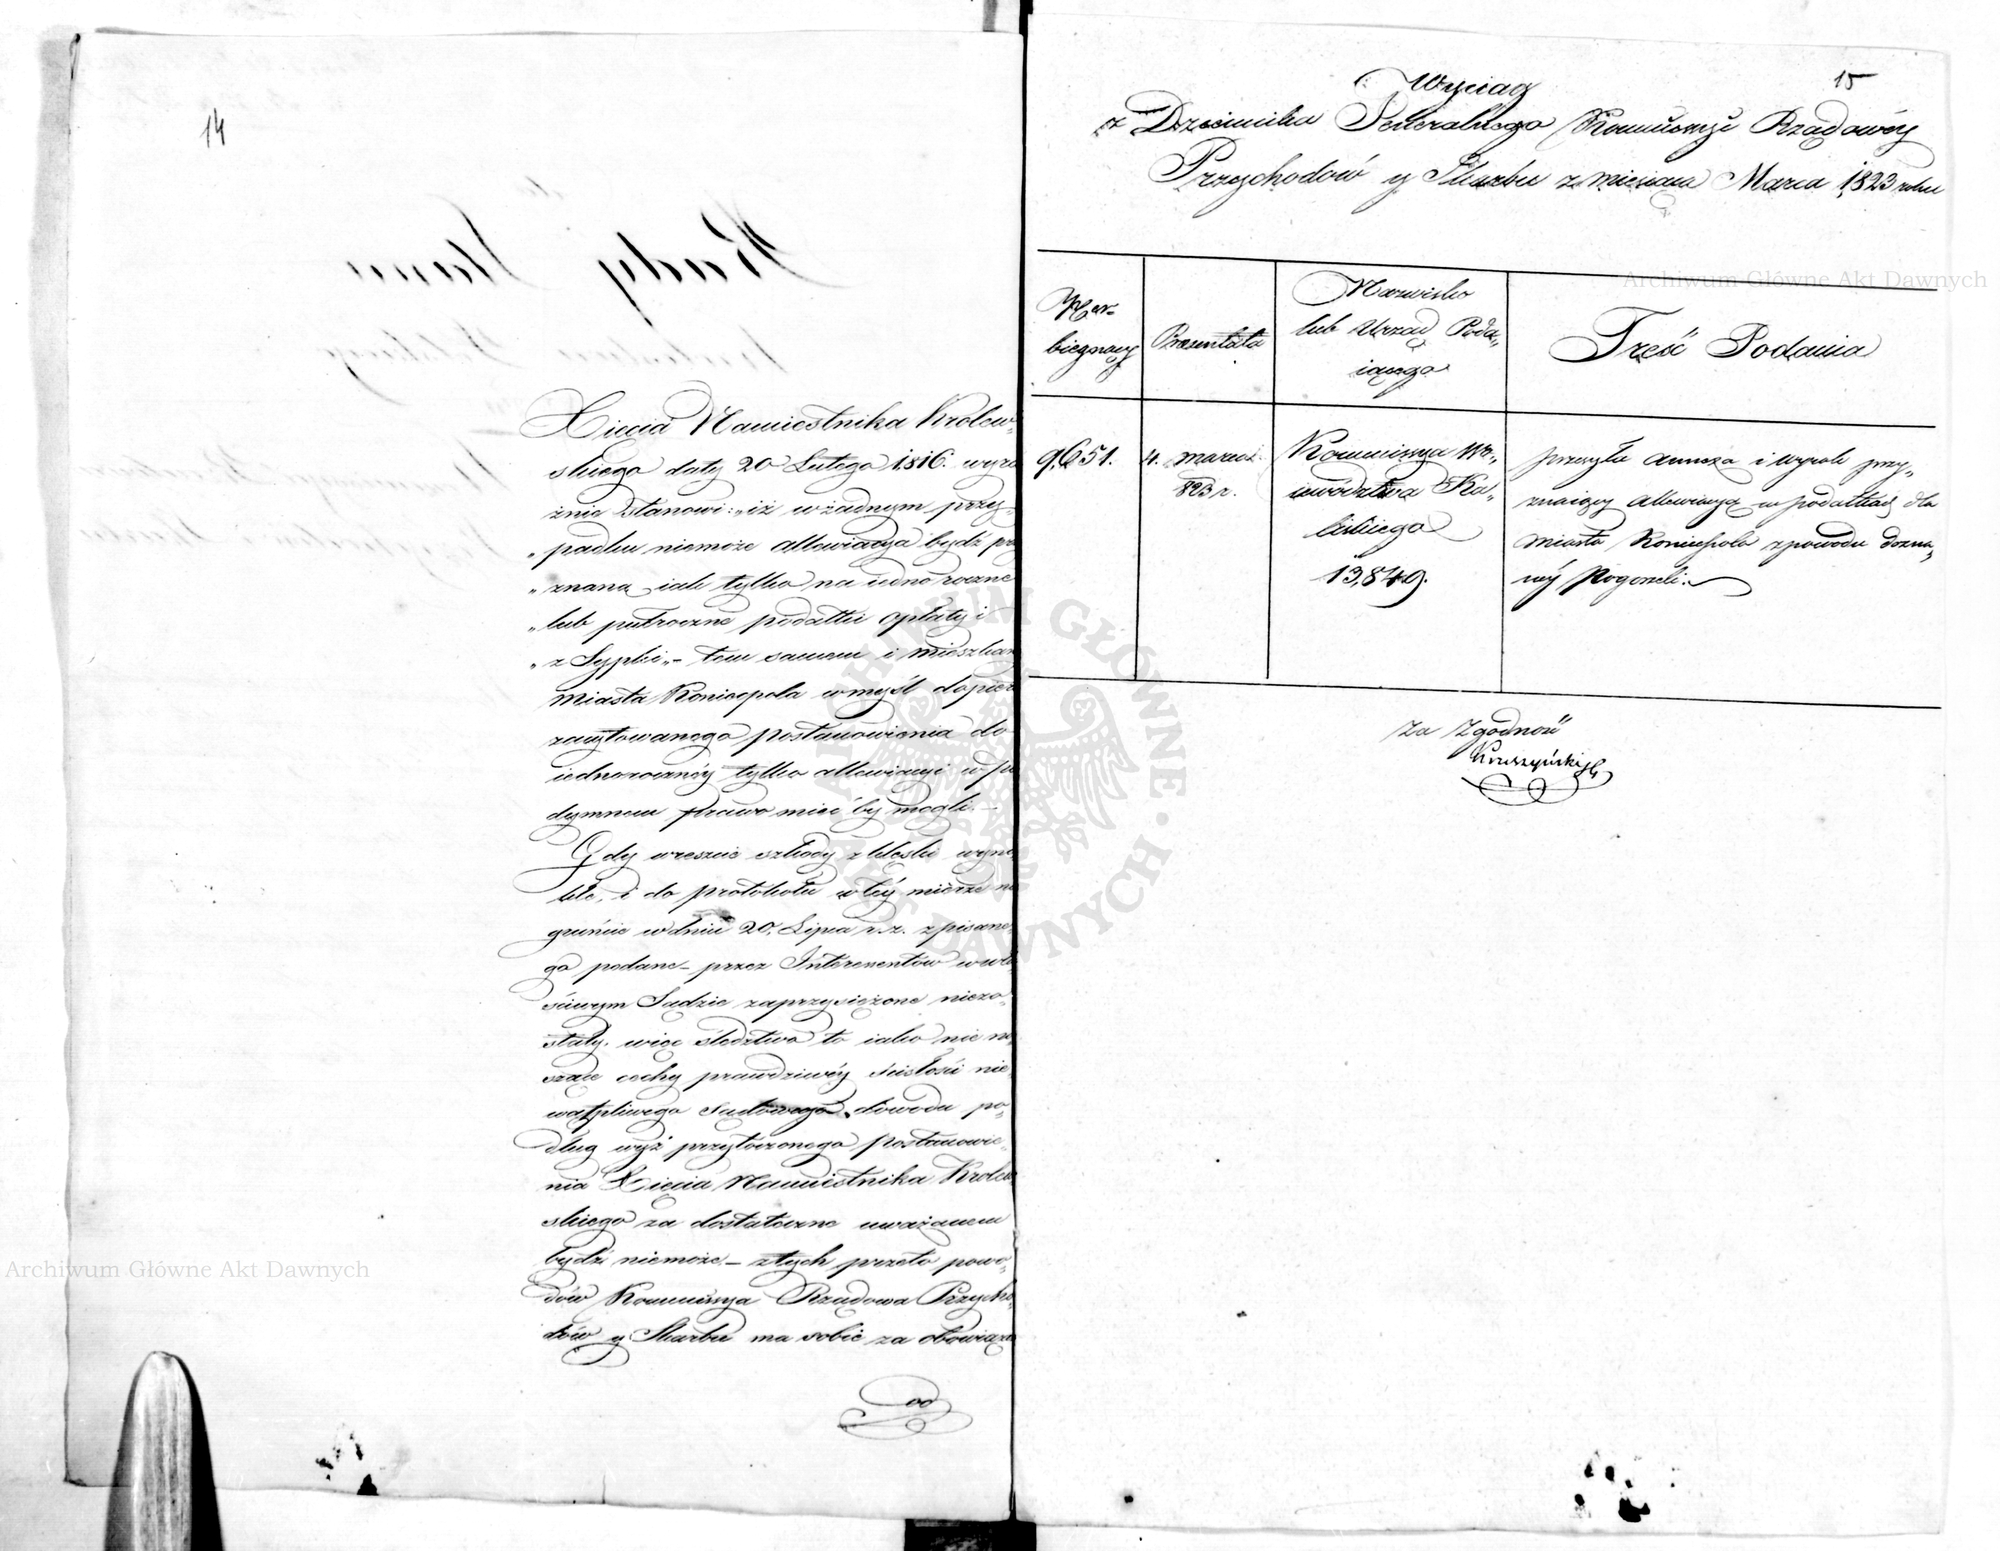 14
Xięcia Namiestnika Królew„
skiego daty 20 Lutego 1816. wyra
źnie stanowi: „iż w żadnym przy„
„padku niemoże allewiacya bydź prz
„znaną iak tylko na iedno roczne
„lub putroczne podatki opłaty i
„z Sypki„ – tem samem i mieszkań
Miasta Koniecpola w myśl dopiero
zacytowanego postanowienia do
iednoroczney tylko allewiacyi w po
dymnem prawo mieć by mogli. –
Gdy wreszcie szkody z klęski wyni
kłe, i do protokółu w téy mierze na
gruncie w dniu 20. Lipca r. z. spisane„
go podane – przez Interesentów w wła
ściwym Sądzie zaprzysiężone niezo„
stały, więc śledztwo to iako nie no
szące cechy prawdziwéy ścisłości nie„
wątpliwego Sądowego dowodu po„
dług wyż przytoczonego postanowie„
nia Xięcia Namiestnika Królew
skiego za dostateczne uważanem
bydź niemoże. – z tych przeto powo„
dów Kommissya Rządowa Przycho„
dów y Skarbu ma sobie za obowiąze
od
15
Wyciąg
z Dziennika Generalnego Kommissyi Rządowéy
Przychodów y Skarbu z miesiąca Marca 1823 roku
Ner
bieżący
Praesentata
Nazwisko
lub Urząd Poda„
iącego
Treść Podania
9,651.
4. marca
823 r.
Kommissya Wo„
iewództwa Ka„
liskiego
13,849.
przesyła annexa i wyrok przy„
znaiący allewiacyą w podatkach dla
miasta Koniecpola z powodu dozna„
néy Pogorzeli.
Za Zgodność
Kruszyński
Archiwum Główne Akt Dawnych
Archiwum Główne Akt Dawnych
ARCHIWUM GŁÓWNE AKT DAWNYCH